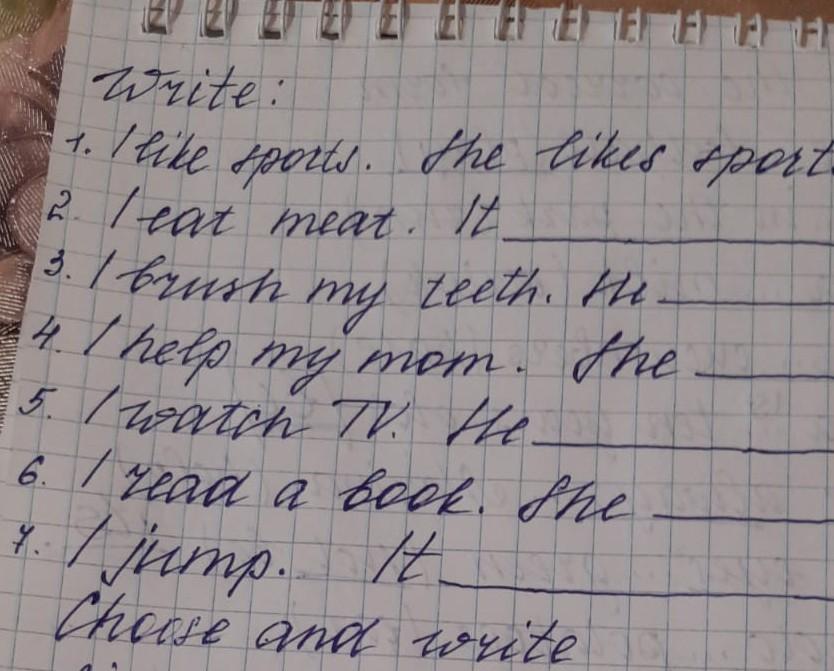 Write:
1. I like sports. She likes sports
2. I eat meat. It
3. I brush my teeth. He
4. I help my mom. She
5. I watch TV. He
6. I read a book. She
7. I jump. It
Choose and write